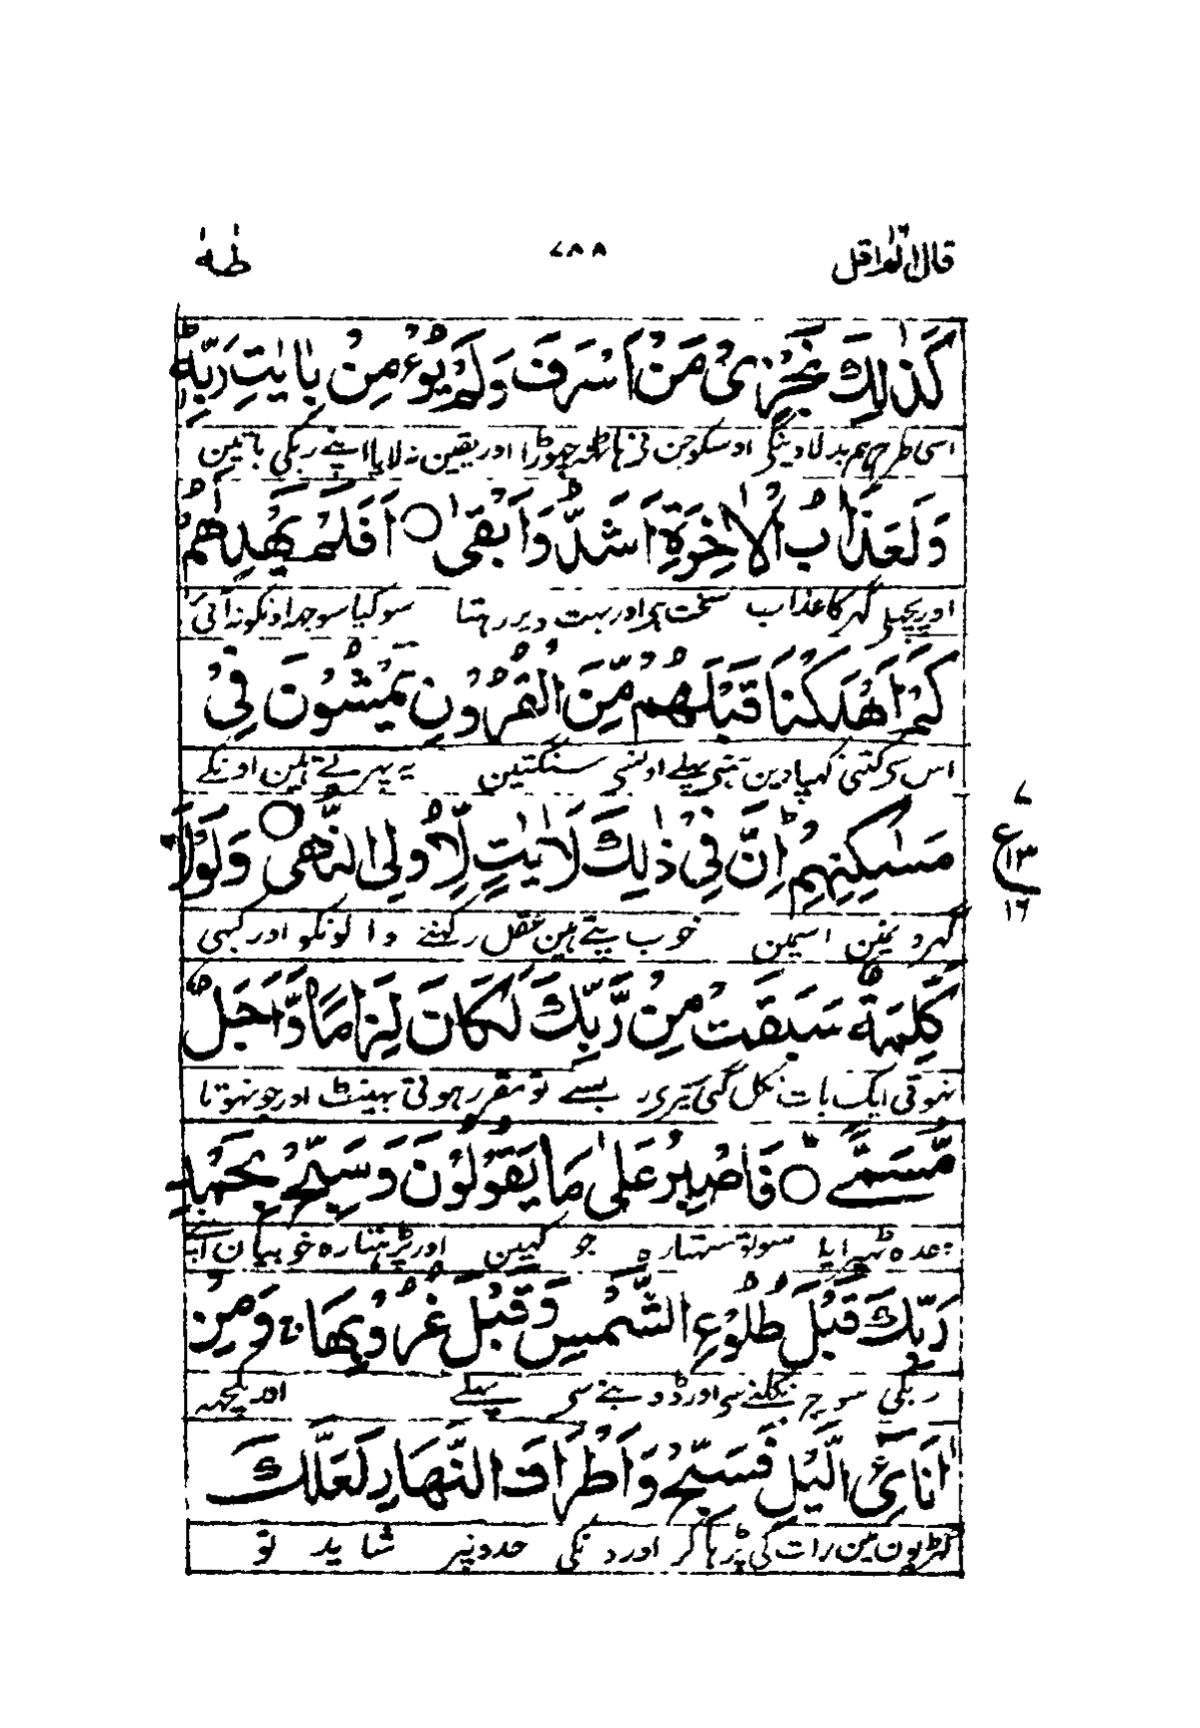 قال الم ١٦ ٧٨٨ طٰهٰ
كَذٰلِكَ نَجْزِیْ مَنْ اَسْرَفَ وَلَمْ یُؤْمِنْ بِاٰیٰتِ رَبِّهٖ ؕ
اسی طرح ہم بدلا دینگے اوسکو جن نے ہاتھ چھوڑا اور یقین نہ لایا اپنے ربکی باتین
وَلَعَذَابُ الْاٰخِرَةِ اَشَدُّ وَاَبْقٰی ○ اَفَلَمْ یَهْدِ لَهُمْ
اور پچھلے گھر کا عذاب سخت ہی اور بہت دیر رہتا سو کیا سوجھ اونکو نہ آئی
كَمْ اَهْلَكْنَا قَبْلَهُمْ مِّنَ الْقُرُوْنِ یَمْشُوْنَ فِیْ
اس سی کتنی کھپا دین ہمنی پہلے اونسی سنگتین یہ پھرتے ہین اونکے
مَسٰكِنِهِمْ ؕ اِنَّ فِیْ ذٰلِكَ لَاٰیٰتٍ لِّاُولِی النُّهٰی ○ وَلَوْلَا
٧ ع ١٣ ١٦
گھرونمین اسمین خوب پتے ہین عقل رکھنے والونکو اور کبھی
كَلِمَةٌ سَبَقَتْ مِنْ رَّبِّكَ لَكَانَ لِزَامًا وَّاَجَلٌ
نہوتی ایک بات نکل گئی تیری ربسے تو مقرر ہوتی بھینٹ اور جو نہوتا
مُّسَمًّی ؕ ○ فَاصْبِرْ عَلٰی مَا یَقُوْلُوْنَ وَسَبِّحْ بِحَمْدِ
وعدہ ٹھہرایا سو تو سہتا رہ جو کہین اور پڑھتا رہ خوبیان اپنے
رَبِّكَ قَبْلَ طُلُوْعِ الشَّمْسِ وَقَبْلَ غُرُوْبِهَا ۚ وَمِنْ
ربکی سورج نکلنے سی اور ڈوبنے سی پہلے اور کچھہ
اٰنَآئِ الَّیْلِ فَسَبِّحْ وَاَطْرَافَ النَّهَارِ لَعَلَّكَ
گھڑیون مین رات کی پڑھا کر اور دنکی حدونپر شاید تو